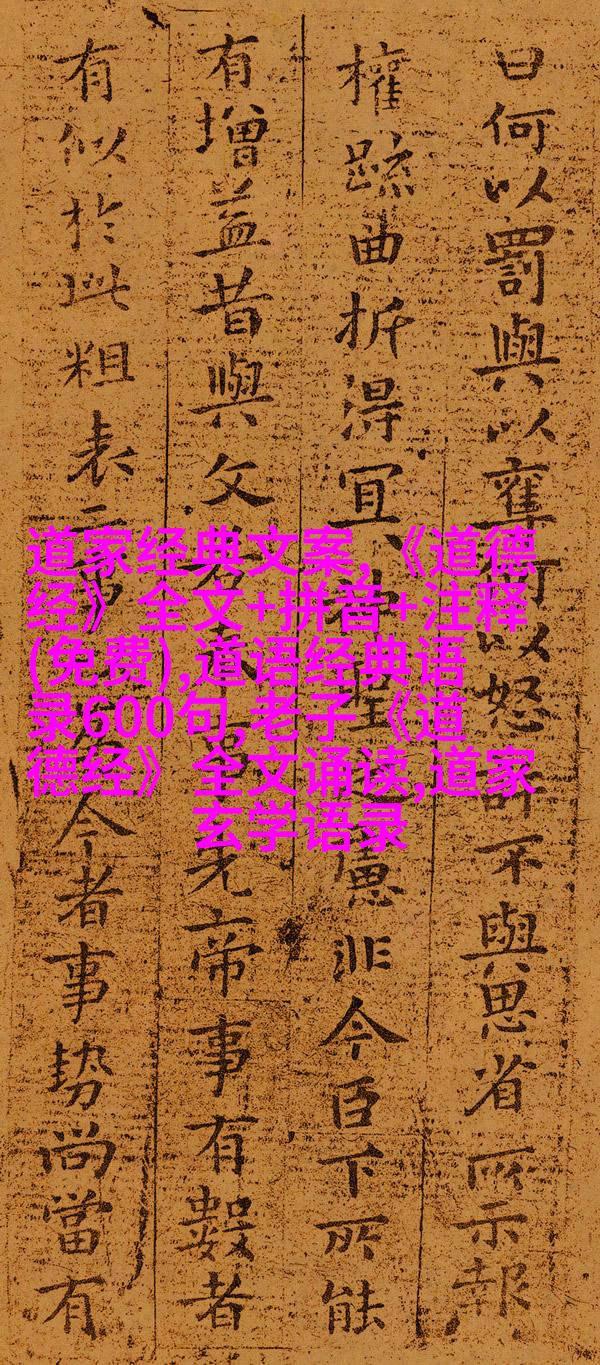 曰何以罰與以奪何以怒許不與思省所示報
權疏曲折得冝神聖慮非今臣下所能
有增益昔與文若事先帝事有數者
有似於此粗表二事為今者事勢尚當有
道家经典文案,《道德
经》全文+拼音+注释
(免费),道语经典语
录600句,老子《道
德经》全文诵读,道家
玄学语录